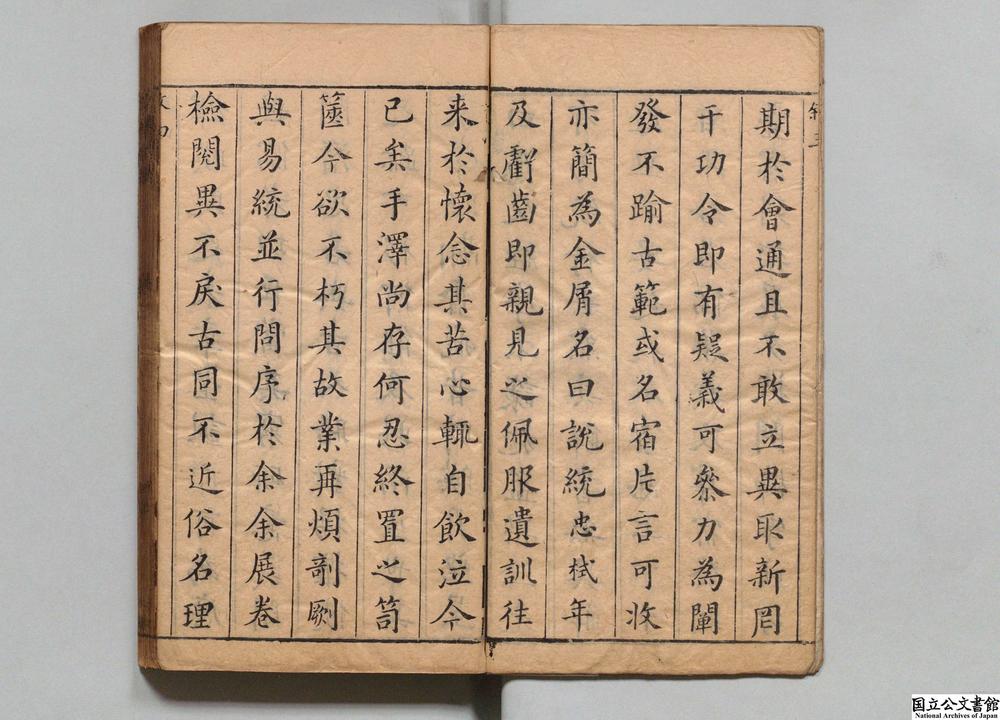 期於會通且不敢立異取新罔
干功令即有疑義可叅力為闡
發不踰古範或名宿片言可收
亦簡為金屑名曰說統忠栻年
及齠齒即親見之佩服遺訓徃
来於懷念其苦心輒自飲泣今
已矣手澤尚存何忍終置之笥
篋今欲不朽其故業再煩剞劂
與易統並行問序於余余展卷
檢閱異不戾古同不近俗名理
国立公文書館
National Archives of Japan